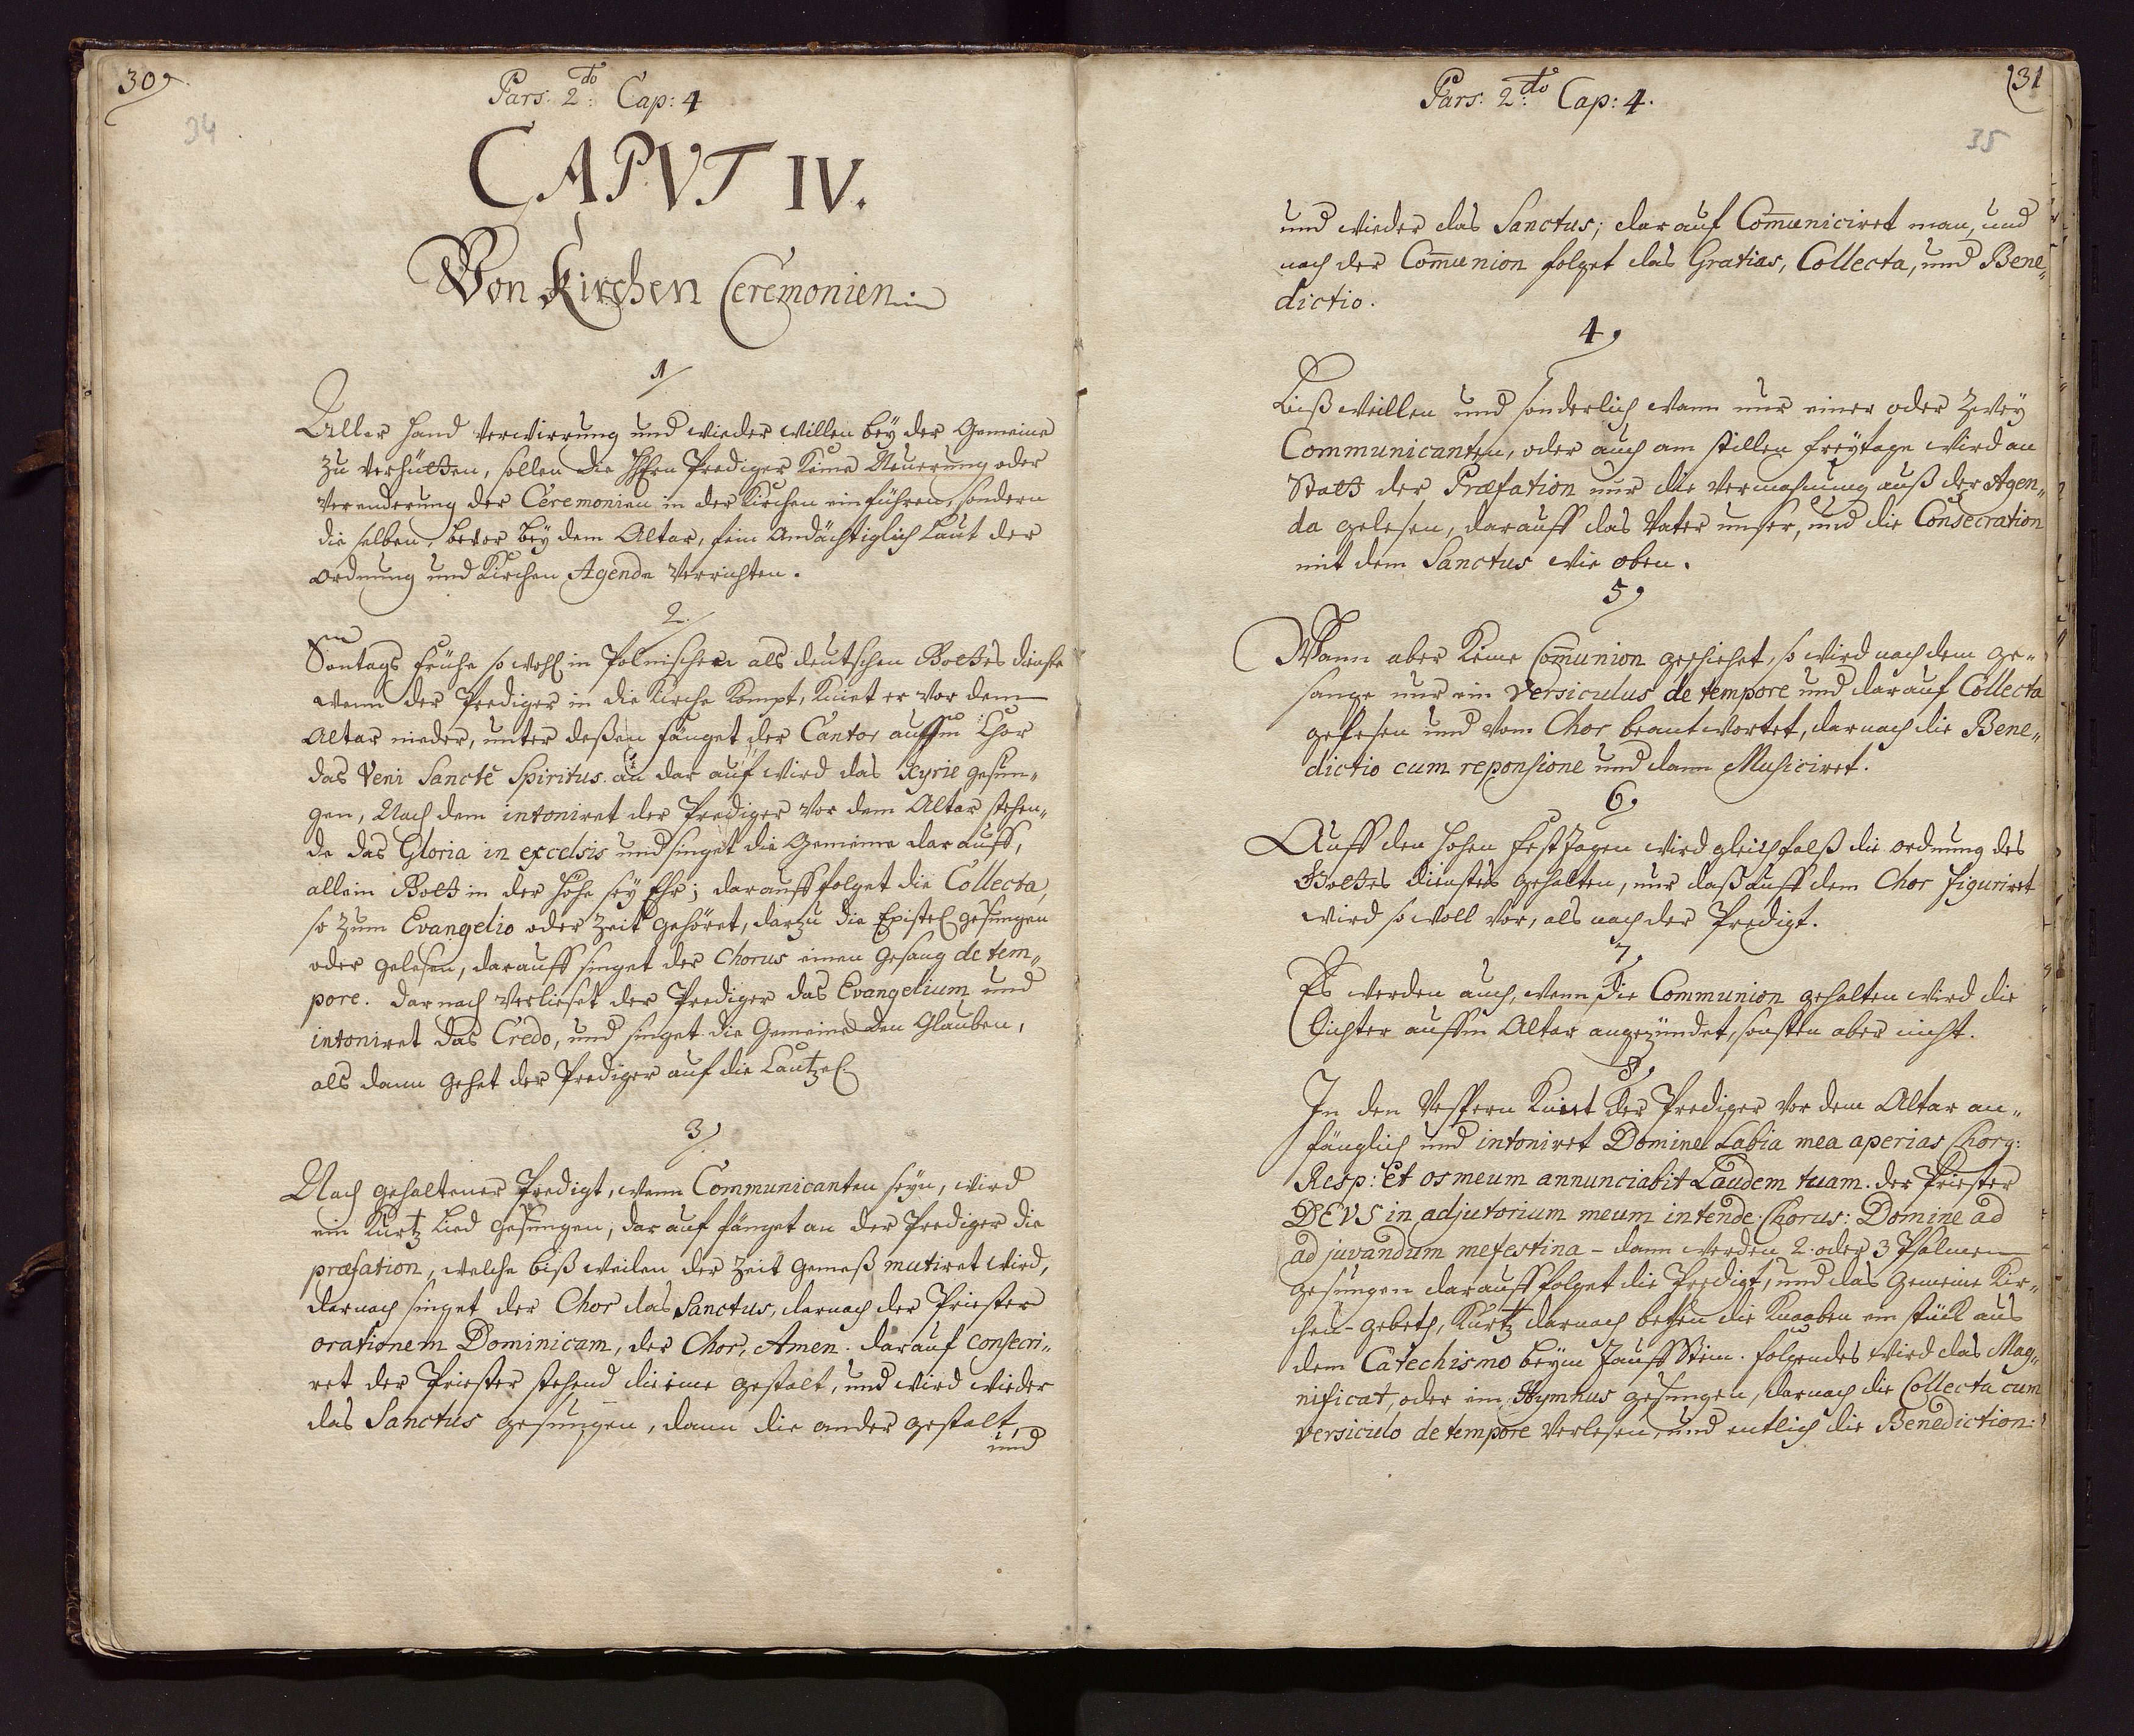 30,
34
Pars. 2do: Cap: 4
CAPVT IV.
Von Kirchen Ceremonien
1
Aller hand Verwirrung und wieder willen beӱ der Gemeine
zu Verhütten, sollen die HHrn Prediger Keine Neuerung oder
Veranderung der Ceremonien in der Kirchen einführen, sondern
die selben, bevor beӱ dem Altar, fein Andächtiglich laut der
ordnung und Kirchen Agenda Verrichten.
2.
Sontags Frühe so wohl in Polnischen als deutschen Gottes dienste
wenn der Prediger in die Kirche Kompt, Kniet er vor dem
Altar nieder, unter deßen fänget der Cantor auffm Chor
das Veni Sancte Spiritus an dar auf wird das Kyrie gesun„
gen, Nach dem intoniret der Prediger vor dem Altar stehen„
de das Gloria in excelsis und singet die Gemeine darauff,
allein Gott in der Höhe seӱ Ehr; darauff folget die Collecta,
so zum Evangelio oder Zeit gehöret, darzu die Epistel gesungen
oder gelesen, darauff singet der Chorus einen Gesang de tem„
pore. darnach Verlieset der Prediger das Evangelium und
intoniret das Credo, und singet die Gemeine den Glauben,
als dann gehet der Prediger auf die Cantzel.
3,
Nach gehaltener Predigt, wenn Communicanten seӱn, wird
ein Kurtz Lied gesungen, darauf fänget an der Prediger die
præfation, welche biß weilen der Zeit gemeß mutiret wird,
darnach singet der Chor das Sanctus, darnach der Priester
orationem Dominicam, der Chor, Amen. darauf consecri„
ret der Priester stehend die eine gestalt, und wird wieder
das Sanctus gesungen, dann die ander gestalt,
und
31
35
Pars: 2do: Cap: 4.
und wieder das Sanctus; darauf Com̄uniciret man, und
nach der Com̄union folget das Gratias, Collecta, und Bene„
dictio.
4,
Bißweillen und sonderlich wann nur einer oder zweӱ
Communicanten, oder auch am stillen Freӱtage wird an
Statt der Præfation nur die Vermahnung auß der Agen„
da gelesen, darauff das Vater unser, und die Consecration
mit dem Sanctus wie oben.
5,
Wann aber Keine Com̄union geschiehet, so wird nach dem ge„
sange nur ein Versiculus de tempore und darauf Collecta
gelesen und vom Chor beantwortet, darnach die Bene„
dictio cum reponsione und dann Musiciret.
6,
Auff den hohen Festtagen wird gleichfalß die ordnung des
Gottes dienstes gehalten, nur daß auff dem Chor figuriret
wird so woll vor, als nach der Predigt.
7,
Es werden auch, wenn die Communion gehalten wird die
Lichter auffm Altar angezündet, sonsten aber nicht.
8,
In den Vespern Kniet der Prediger vor dem Altar an„
fänglich und intoniret Domine Labia mea aperias Chorg:
Resp: Et os meum annunciabit Laudem tuam. der Priester
DEVS in adjutorium meum intende. Chorus: Domine ad
ad juvandum me festina - dann werden 2. oder 3 Psalmen
gesungen darauff folget die Predigt, und das gemeine Kir„
chen-gebeth, Kurtz darnach bethen die Knaaben ein stück aus
dem Catechismo beӱm Tauff Stein. folgendes wird das Mag„
nificat, oder ein Hymnus gesungen, darnach die Collecta cum
versiculo de tempore Verlesen, und entlich die Benediction: